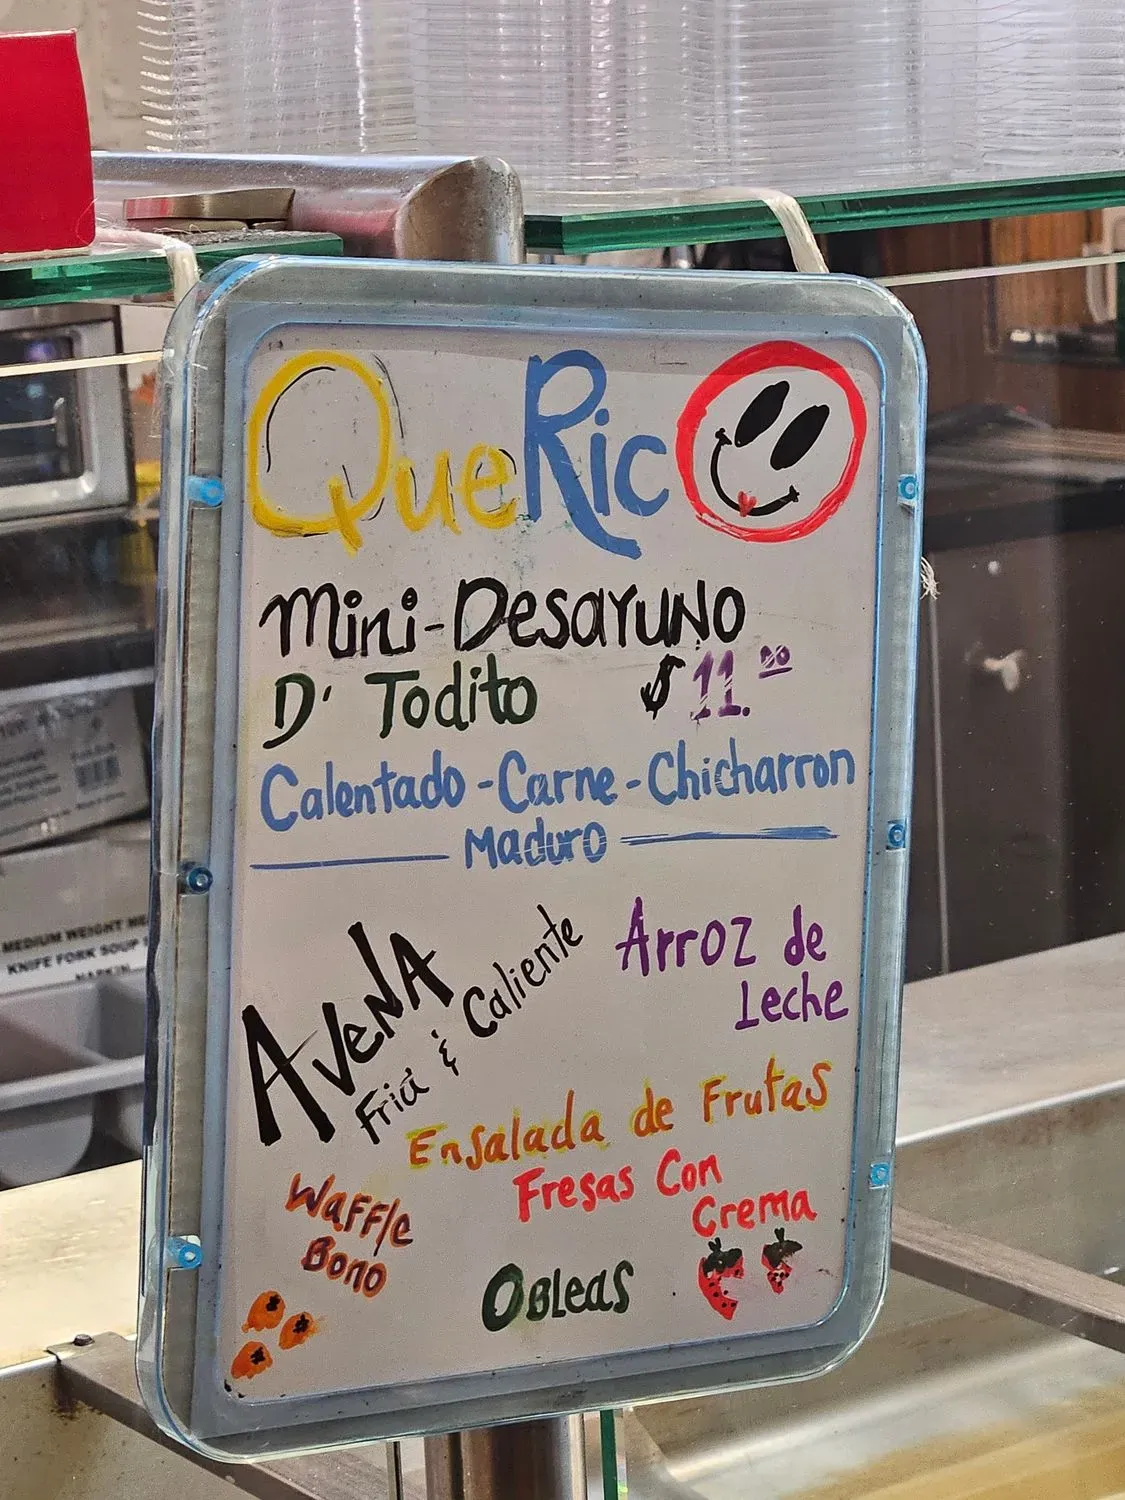 QueRico
Mini-Desayuno
D' Todito $11.00
Calentado-Carne-Chicharron
Maduro
Avena
Fria & Caliente
Arroz de
Leche
Ensalada de Frutas
Fresas Con
Crema
Waffle
Bono
Obleas
MEDIUM WEIGHT
KNIFE FORK SOUP
NAPKIN